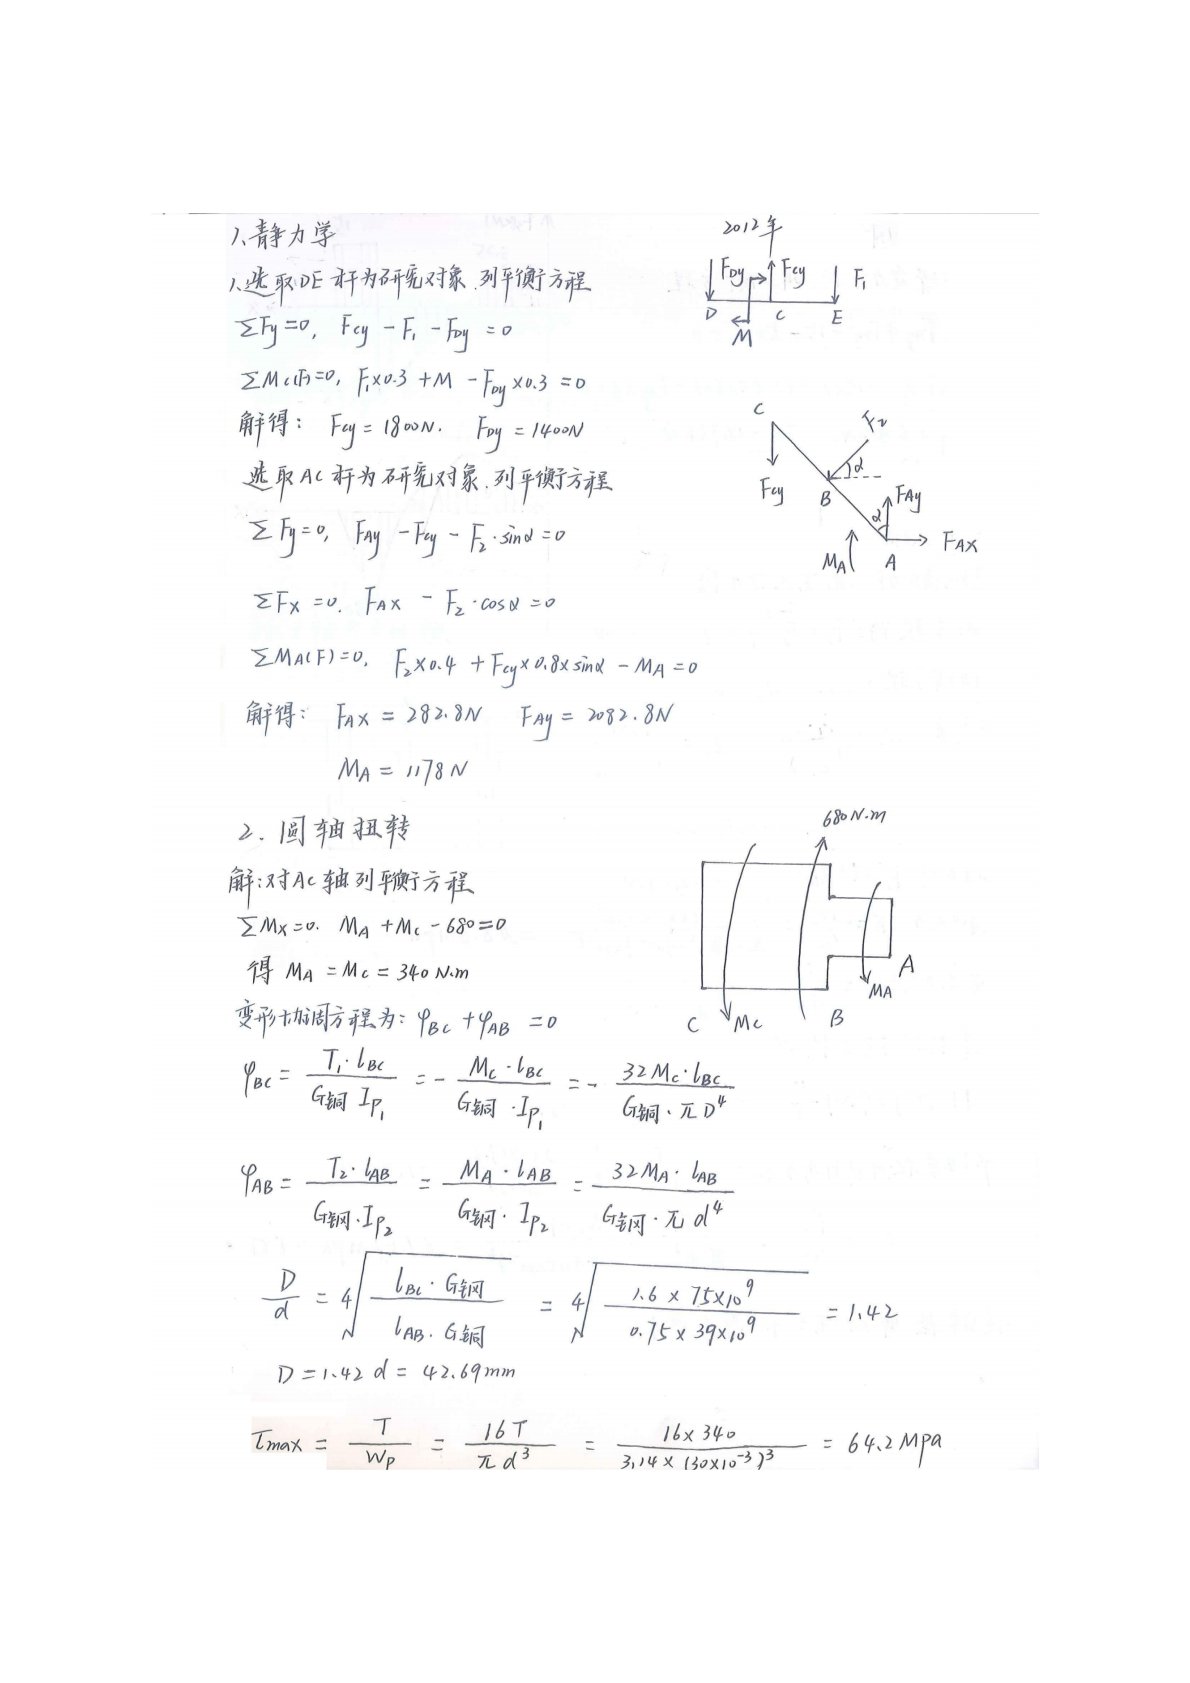 1、静力学
2012年
1、选取DE杆为研究对象.列平衡方程
FDy FCy F1
D C E
M
ΣFy=0, FCy - F1 - FDy = 0
ΣMC(F)=0, F1×0.3 + M - FDy×0.3 = 0
解得: FCy = 1800N. FDy = 1400N
C F2 α
FCy B FAy
α
MA A FAX
选取AC杆为研究对象.列平衡方程
ΣFy=0, FAy - FCy - F2·sinα = 0
ΣFX=0. FAX - F2·cosα = 0
ΣMA(F)=0, F2×0.4 + FCy×0.8×sinα - MA = 0
解得: FAX = 282.8N FAy = 2082.8N
MA = 1178N
2. 圆轴扭转
680N·m
解:对AC轴列平衡方程
ΣMX=0. MA + MC - 680 = 0
得 MA = MC = 340 N·m
A
MA
C MC B
变形协调方程为: φBC + φAB = 0
φBC = T1·lBC / G铜 IP1 = - MC·lBC / G铜·IP1 = - 32MC·lBC / G铜·πD⁴
φAB = T2·lAB / G钢·IP2 = MA·lAB / G钢·IP2 = 32MA·lAB / G钢·πd⁴
D/d = ⁴√(lBC·G钢 / lAB·G铜) = ⁴√(1.6×75×10⁹ / 0.75×39×10⁹) = 1.42
D = 1.42 d = 42.69mm
τmax = T / WP = 16T / πd³ = 16×340 / 3.14×(30×10⁻³)³ = 64.2 MPa